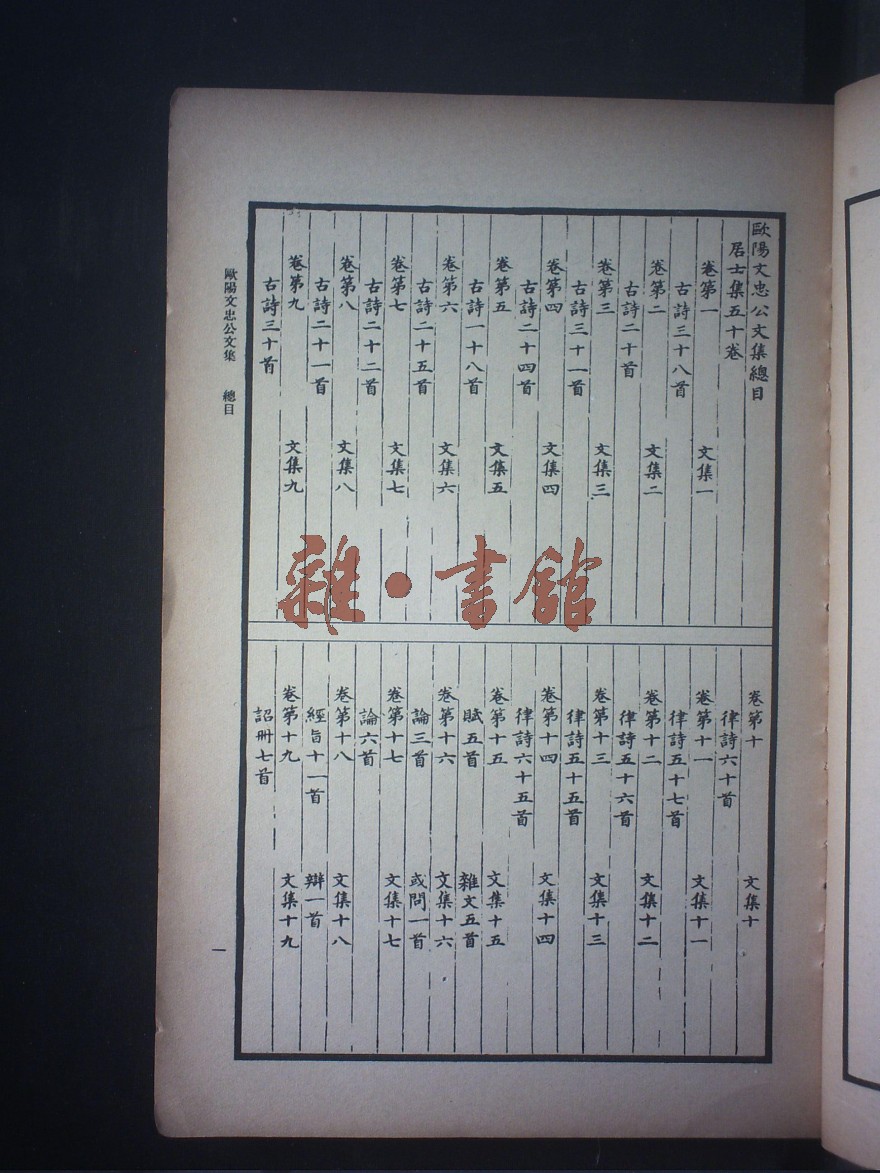 歐陽文忠公文集總目
居士集五十卷
卷第一 文集一
古詩三十八首
卷第二 文集二
古詩二十首
卷第三 文集三
古詩三十一首
卷第四 文集四
古詩二十四首
卷第五 文集五
古詩一十八首
卷第六 文集六
古詩二十五首
卷第七 文集七
古詩二十二首
卷第八 文集八
古詩二十一首
卷第九 文集九
古詩三十首
卷第十 文集十
律詩六十首
卷第十一 文集十一
律詩五十七首
卷第十二 文集十二
律詩五十六首
卷第十三 文集十三
律詩五十五首
卷第十四 文集十四
律詩六十五首
卷第十五 文集十五
賦五首 雜文五首
卷第十六 文集十六
論三首 或問一首
卷第十七 文集十七
論六首
卷第十八 文集十八
經旨十一首 辯一首
卷第十九 文集十九
詔冊七首
歐陽文忠公文集 總目
一
雜·書館